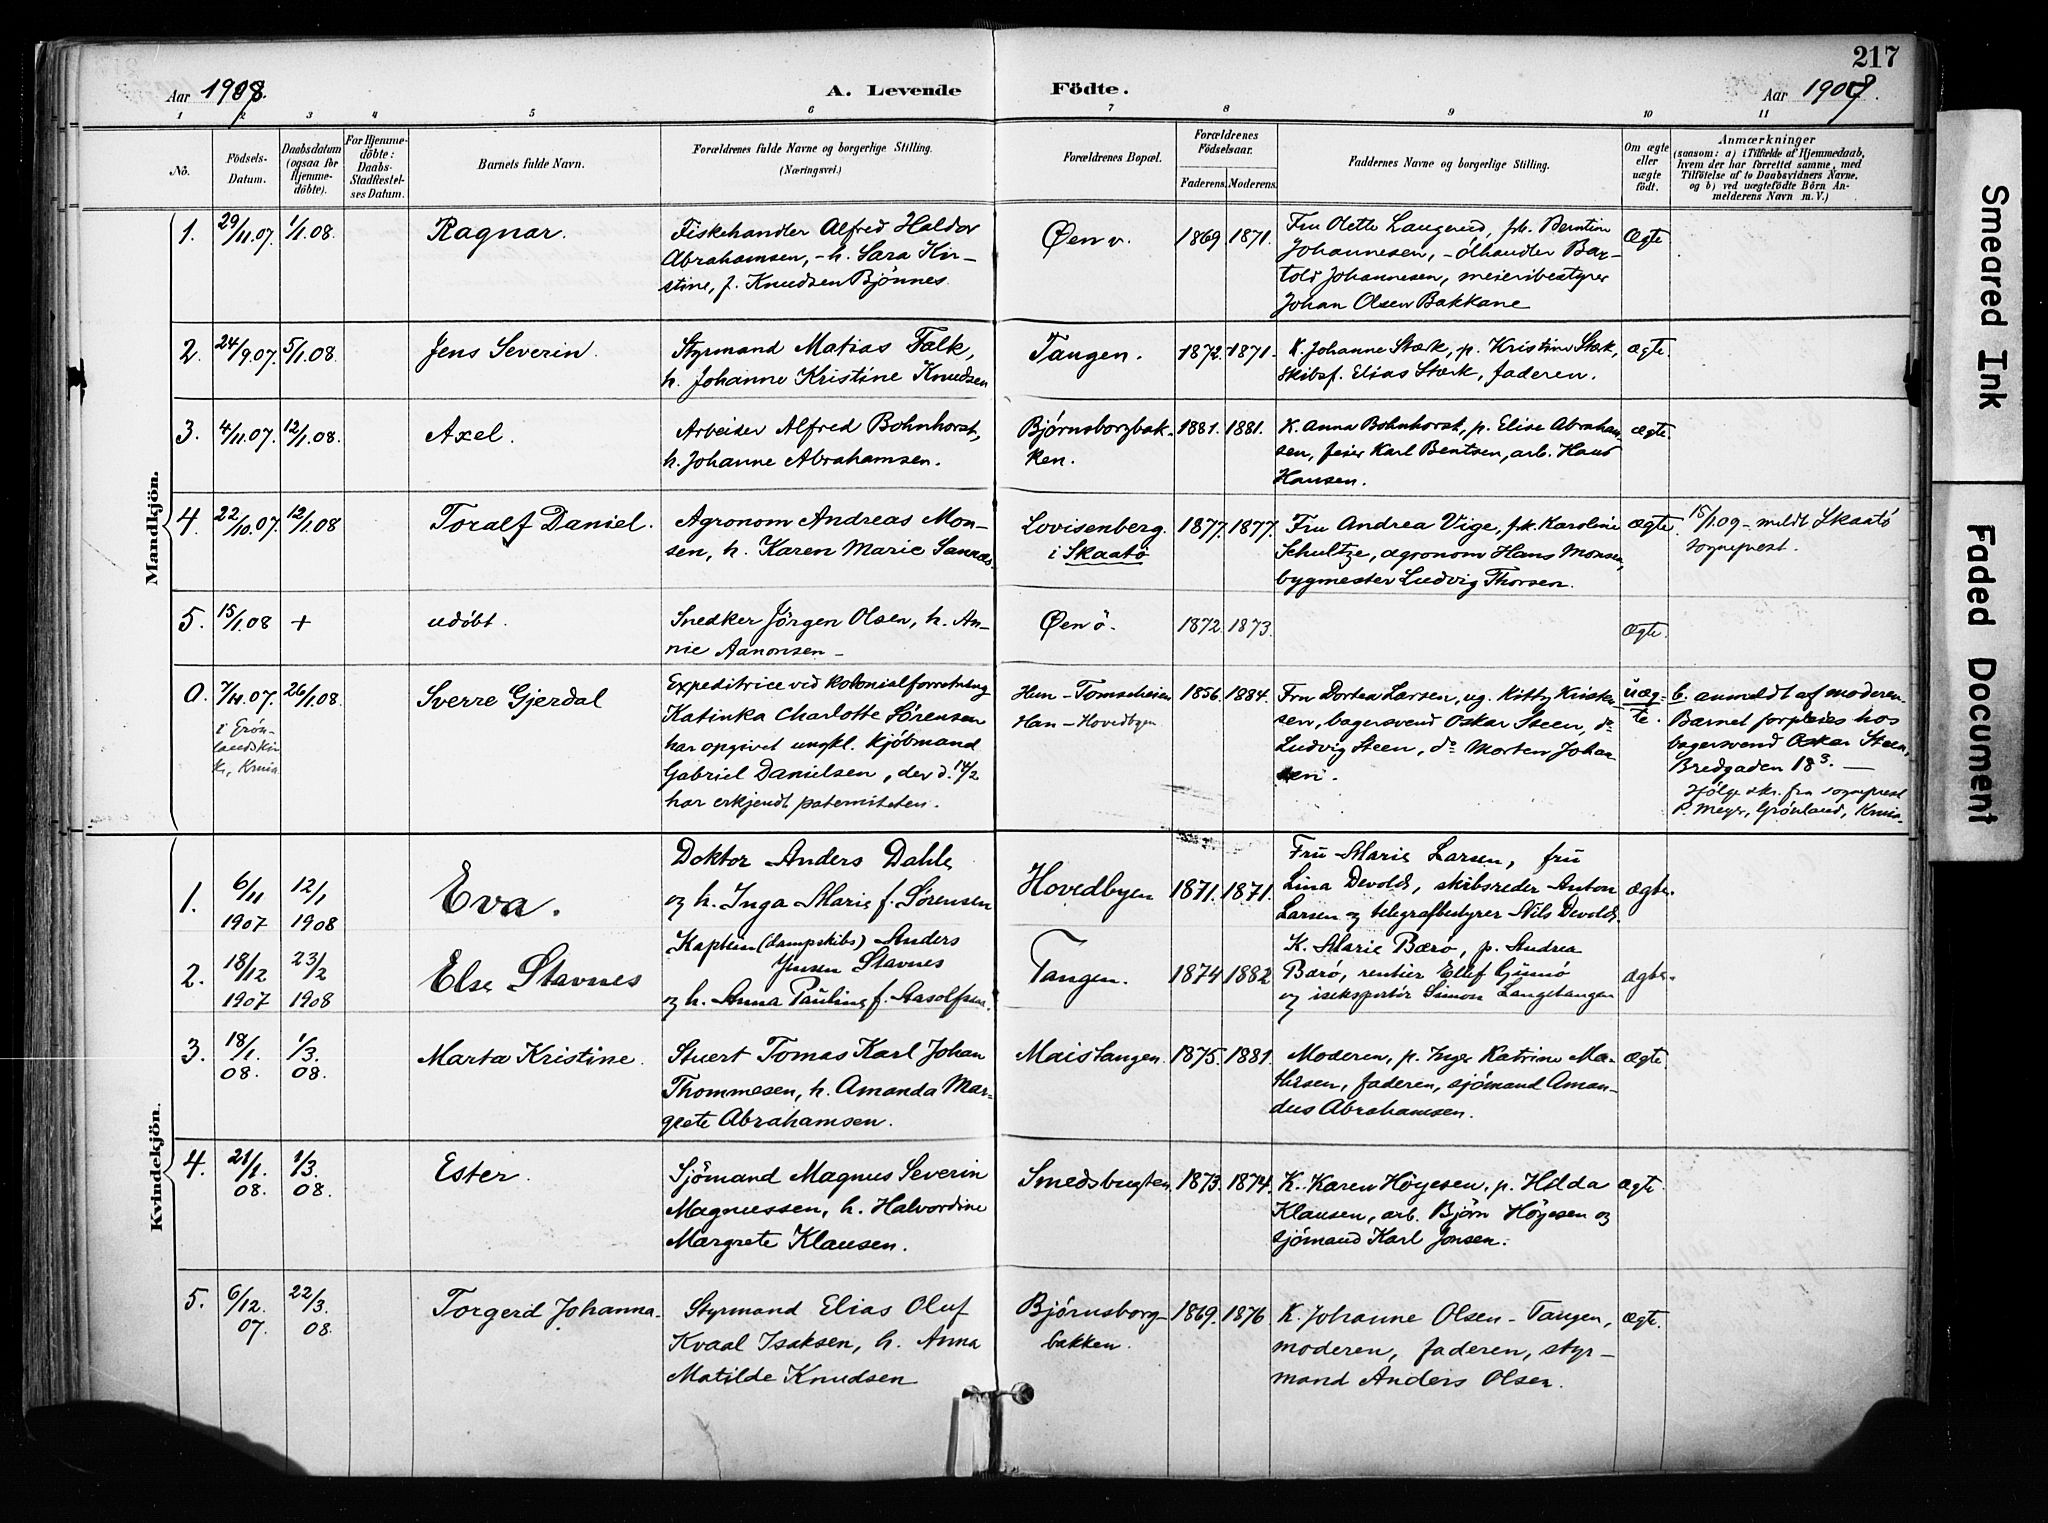 217
Aar 1908.
A. Levende Födte.
Aar 1908.
1 2 3 4 5 6 7 8 9 10 11
No.
Födsels-
Datum.
Daabsdatum
(ogsaa for
Hjemme-
döbte).
For Hjemme-
döbte:
Daabs-
Stadfæstel-
ses Datum.
Barnets fulde Navn.
Forældrenes fulde Navne og borgerlige Stilling.
(Næringsvei.)
Forældrenes Bopæl.
Forældrenes
Födselsaar.
Faderens. Moderens.
Faddernes Navne og borgerlige Stilling.
Om ægte
eller
uægte
födt.
Anmærkninger
(saasom: a) i Tilfælde af Hjemmedaab,
hvem der har forrettet samme, med
Tilföielse af to Daabsvidners Navne,
og b) ved uægtefödte Börn An-
melderens Navn m. V.)
Mandkjön.
1. 29/11.07. 1/1.08. Ragnar.
Fiskehandler Alfred Haldor
Abrahamsen, - h. Sara Kir-
stine, f. Knudsen Bjönnes
Øen v. 1869 1871.
Fru Olette Laugerud, frk. Berntine
Johannesen, - ölhandler Bar-
told Johannesen, meieribestyrer
Johan Olsen Bakkane
Ægte
2. 24/9.07. 5/1.08. Jens Severin.
Styrmand Matias Falk,
h. Johanne Kristine Knudsen
Tangen. 1872. 1871.
K. Johanne Stærk, p. Kristine Stærk,
skibsf. Elias Stærk, faderen.
ægte.
3. 4/11.07. 12/1.08. Axel.
Arbeider Alfred Bohnhorst,
h. Johanne Abrahamsen.
Bjørnsborgbak-
ken.
1881. 1881.
K. Anna Bohnhorst, p. Elise Abraham-
sen, feier Karl Bentsen, arb. Hans
Hansen.
ægte.
4. 22/10.07. 12/1.08 Toralf Daniel.
Agronom Andreas Mon-
sen, h. Karen Marie Sannæs.
Lovisenberg.
i Skaatö
1877. 1877.
Fru Andrea Vige, frk. Karoline
Schultze, agronom Hans Monsen,
bygmester Ludvig Thorsen.
ægte.
15/1.09 - meldt Skaatö
sogneprest.
5. 15/1.08 + udöbt.
Snedker Jörgen Olsen, h. An-
nie Aanonsen -
Øen ö. 1872. 1873.
Ægte.
0. 7/11.07. 26/1.08. Sverre Gjerdal
i Grön-
landskir
k., Krnia.
Expeditrice ved kolonialforretning
Katinka Charlotte Sørensen
har opgivet ungkl. kjöbmand
Gabriel Danielsen, der d. 14/2
har erkjendt paterniteten.
Hun - Tomasheien
Han - Hovedbyen
1856. 1884.
Fru Dortea Larsen, ug. Kitty Kristen-
sen, bagersvend Oskar Steen, do
Ludvig Steen, do Morten Johan
sen.
uæg-
te.
b. anmeldt af moderen
Barnet forpleies hos
bagersvend Oskar Steen,
Bredgaden 18³. -
Ifölge skr. fra sogneprest
P. Meyer, Grönland, Krnia.
Kvindekjön.
1. 6/11 1907 12/1 1908 Eva.
Doktor Anders Dahle
og h. Inga Marie f. Sørensen
Hovedbyen 1871. 1871.
Fru Marie Larsen, fru
Lina Devold, skibsreder Anton
Larsen og telegrafbestyrer Nils Devold.
ægte.
2. 18/12 1907 23/2 1908 Else Stavnes
Kaptein (dampskibs) Anders
Jensen Stavnes
og h. Anna Pauline f. Aasolfsen.
Tangen. 1874 1882
K. Marie Barö, p. Andrea
Barö, rentier Elef Gumö
og iseksportör Simon Langetangen
ægte.
3. 18/1. 08. 1/3. 08. Marta Kristine.
Stuert Tomas Karl Johan
Thommesen, h. Amanda Mar-
grete Abrahamsen.
Maistangen. 1875. 1881.
Moderen, p. Inger Katrine Ma-
thisen, faderen, sjömand Aman-
dus Abrahamsen.
ægte
4. 21/1. 08. 1/3. 08. Ester.
Sjömand Magnus Severin
Magnussen, h. Halvordine
Margrete Klausen.
Smedsbugten. 1873. 1874.
K. Karen Höyesen, p. Hilda
Klausen, arb. Björn Höyesen og
sjömand Karl Jonsen.
ægte.
5. 6/12. 07. 22/3. 08. Torgerd Johanna.
Styrmand Elias Oluf
Kvaal Isaksen, h. Anna
Matilde Knudsen
Bjørnsborg-
bakken.
1869. 1876
K. Johanne Olsen - Tangen,
moderen, faderen, styr-
mand Anders Olsen.
ægte.
Smeared Ink
Faded Document